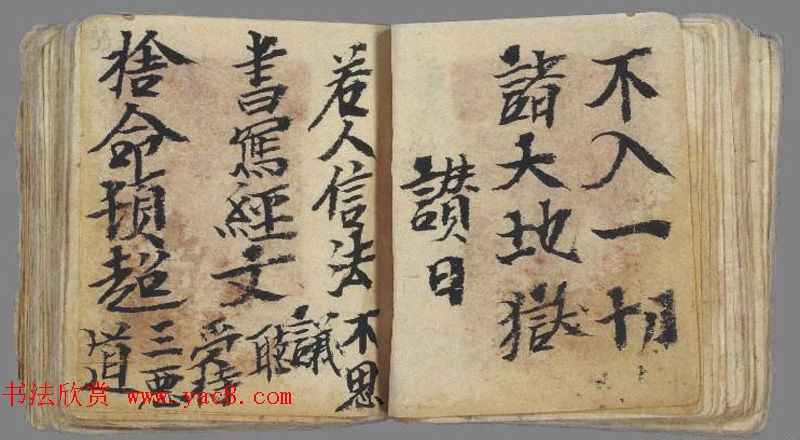 不入一切
諸大地獄
讃曰
若人信法不思議
書寫經文聴受持
捨命頓超三悪道
书法欣赏 www.yac8.com